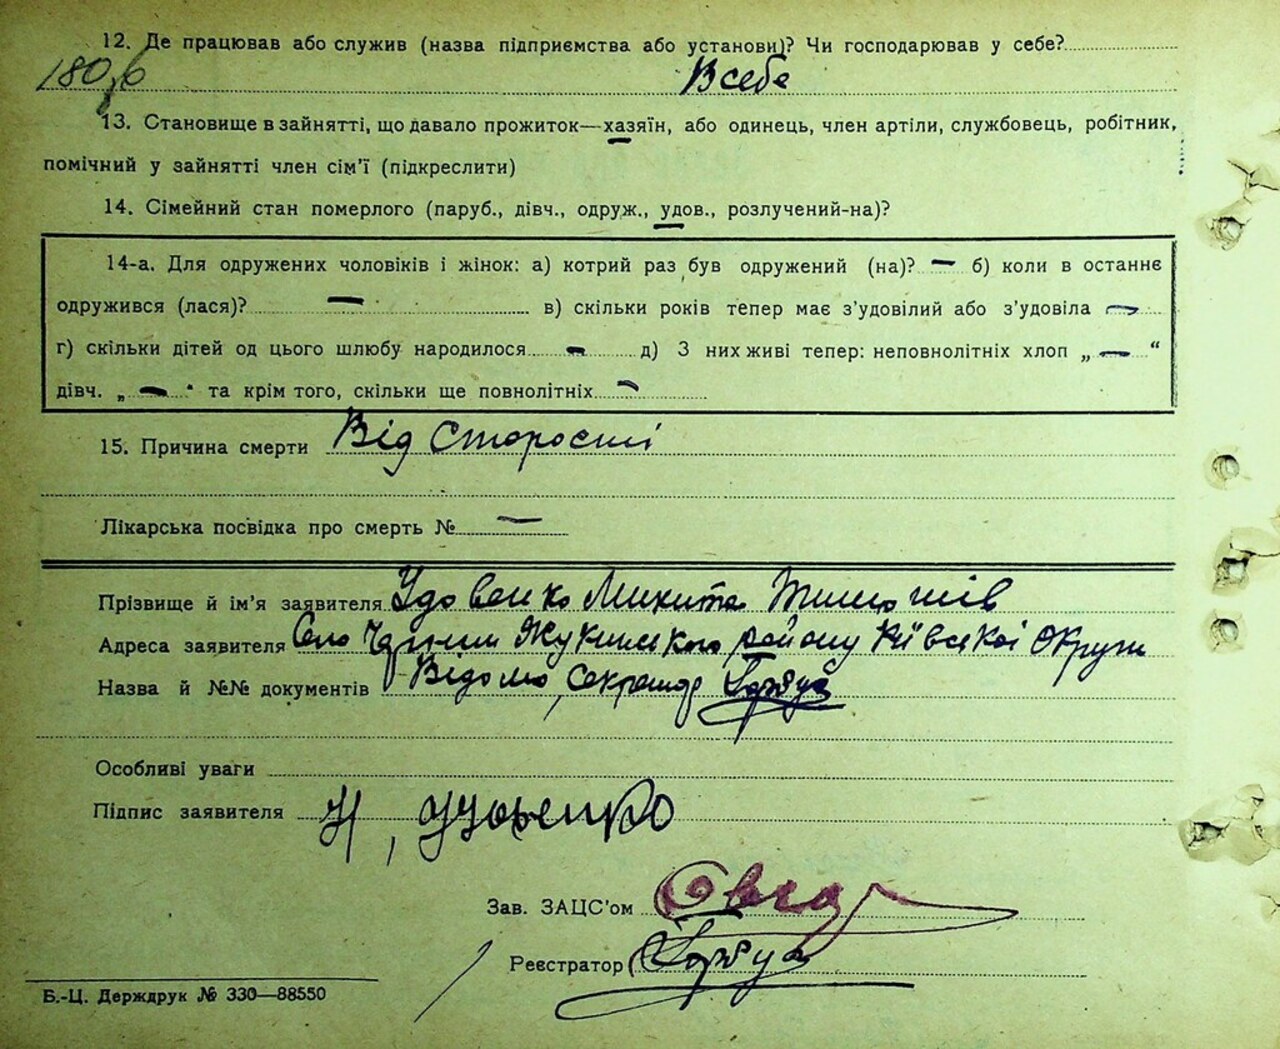 12. Де працював або служив (назва підприємства або установи)? Чи господарював у себе?
180 В себе
13. Становище в зайнятті, що давало прожиток—хазяїн, або одинець, член артіли, службовець, робітник,
помічний у зайнятті член сім’ї (підкреслити)
14. Сімейний стан померлого (паруб., дівч., одруж., удов., розлучений-на)?
14-а. Для одружених чоловіків і жінок: а) котрий раз був одружений (на)? — б) коли в останнє
одружився (лася)? — в) скільки років тепер має з’удовілий або з’удовіла —
г) скільки дітей од цього шлюбу народилося — д) З них живі тепер: неповнолітніх хлоп „ — “
дівч. „ — “ та крім того, скільки ще повнолітніх —
15. Причина смерти Від старости
Лікарська посвідка про смерть № —
Прізвище й ім’я заявителя Удовенко Микита
Адреса заявителя Село Жукинського району Київської Округи
Назва й №№ документів Відомо, Секретар
Особливі уваги
Підпис заявителя Удовенко
Зав. ЗАЦС’ом
Реєстратор
Б.-Ц. Держдрук № 330—88550